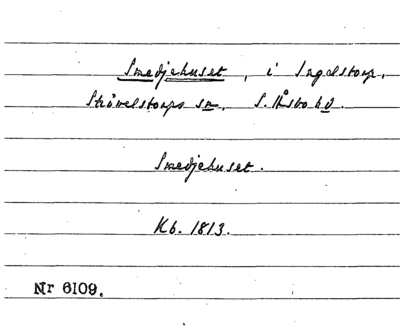 Smedjehuset, i Ingelstorp,
Strövelstorps sn, S. Åsbo hd.
Smedjehuset.
Kb. 1813.
Nr 6109.